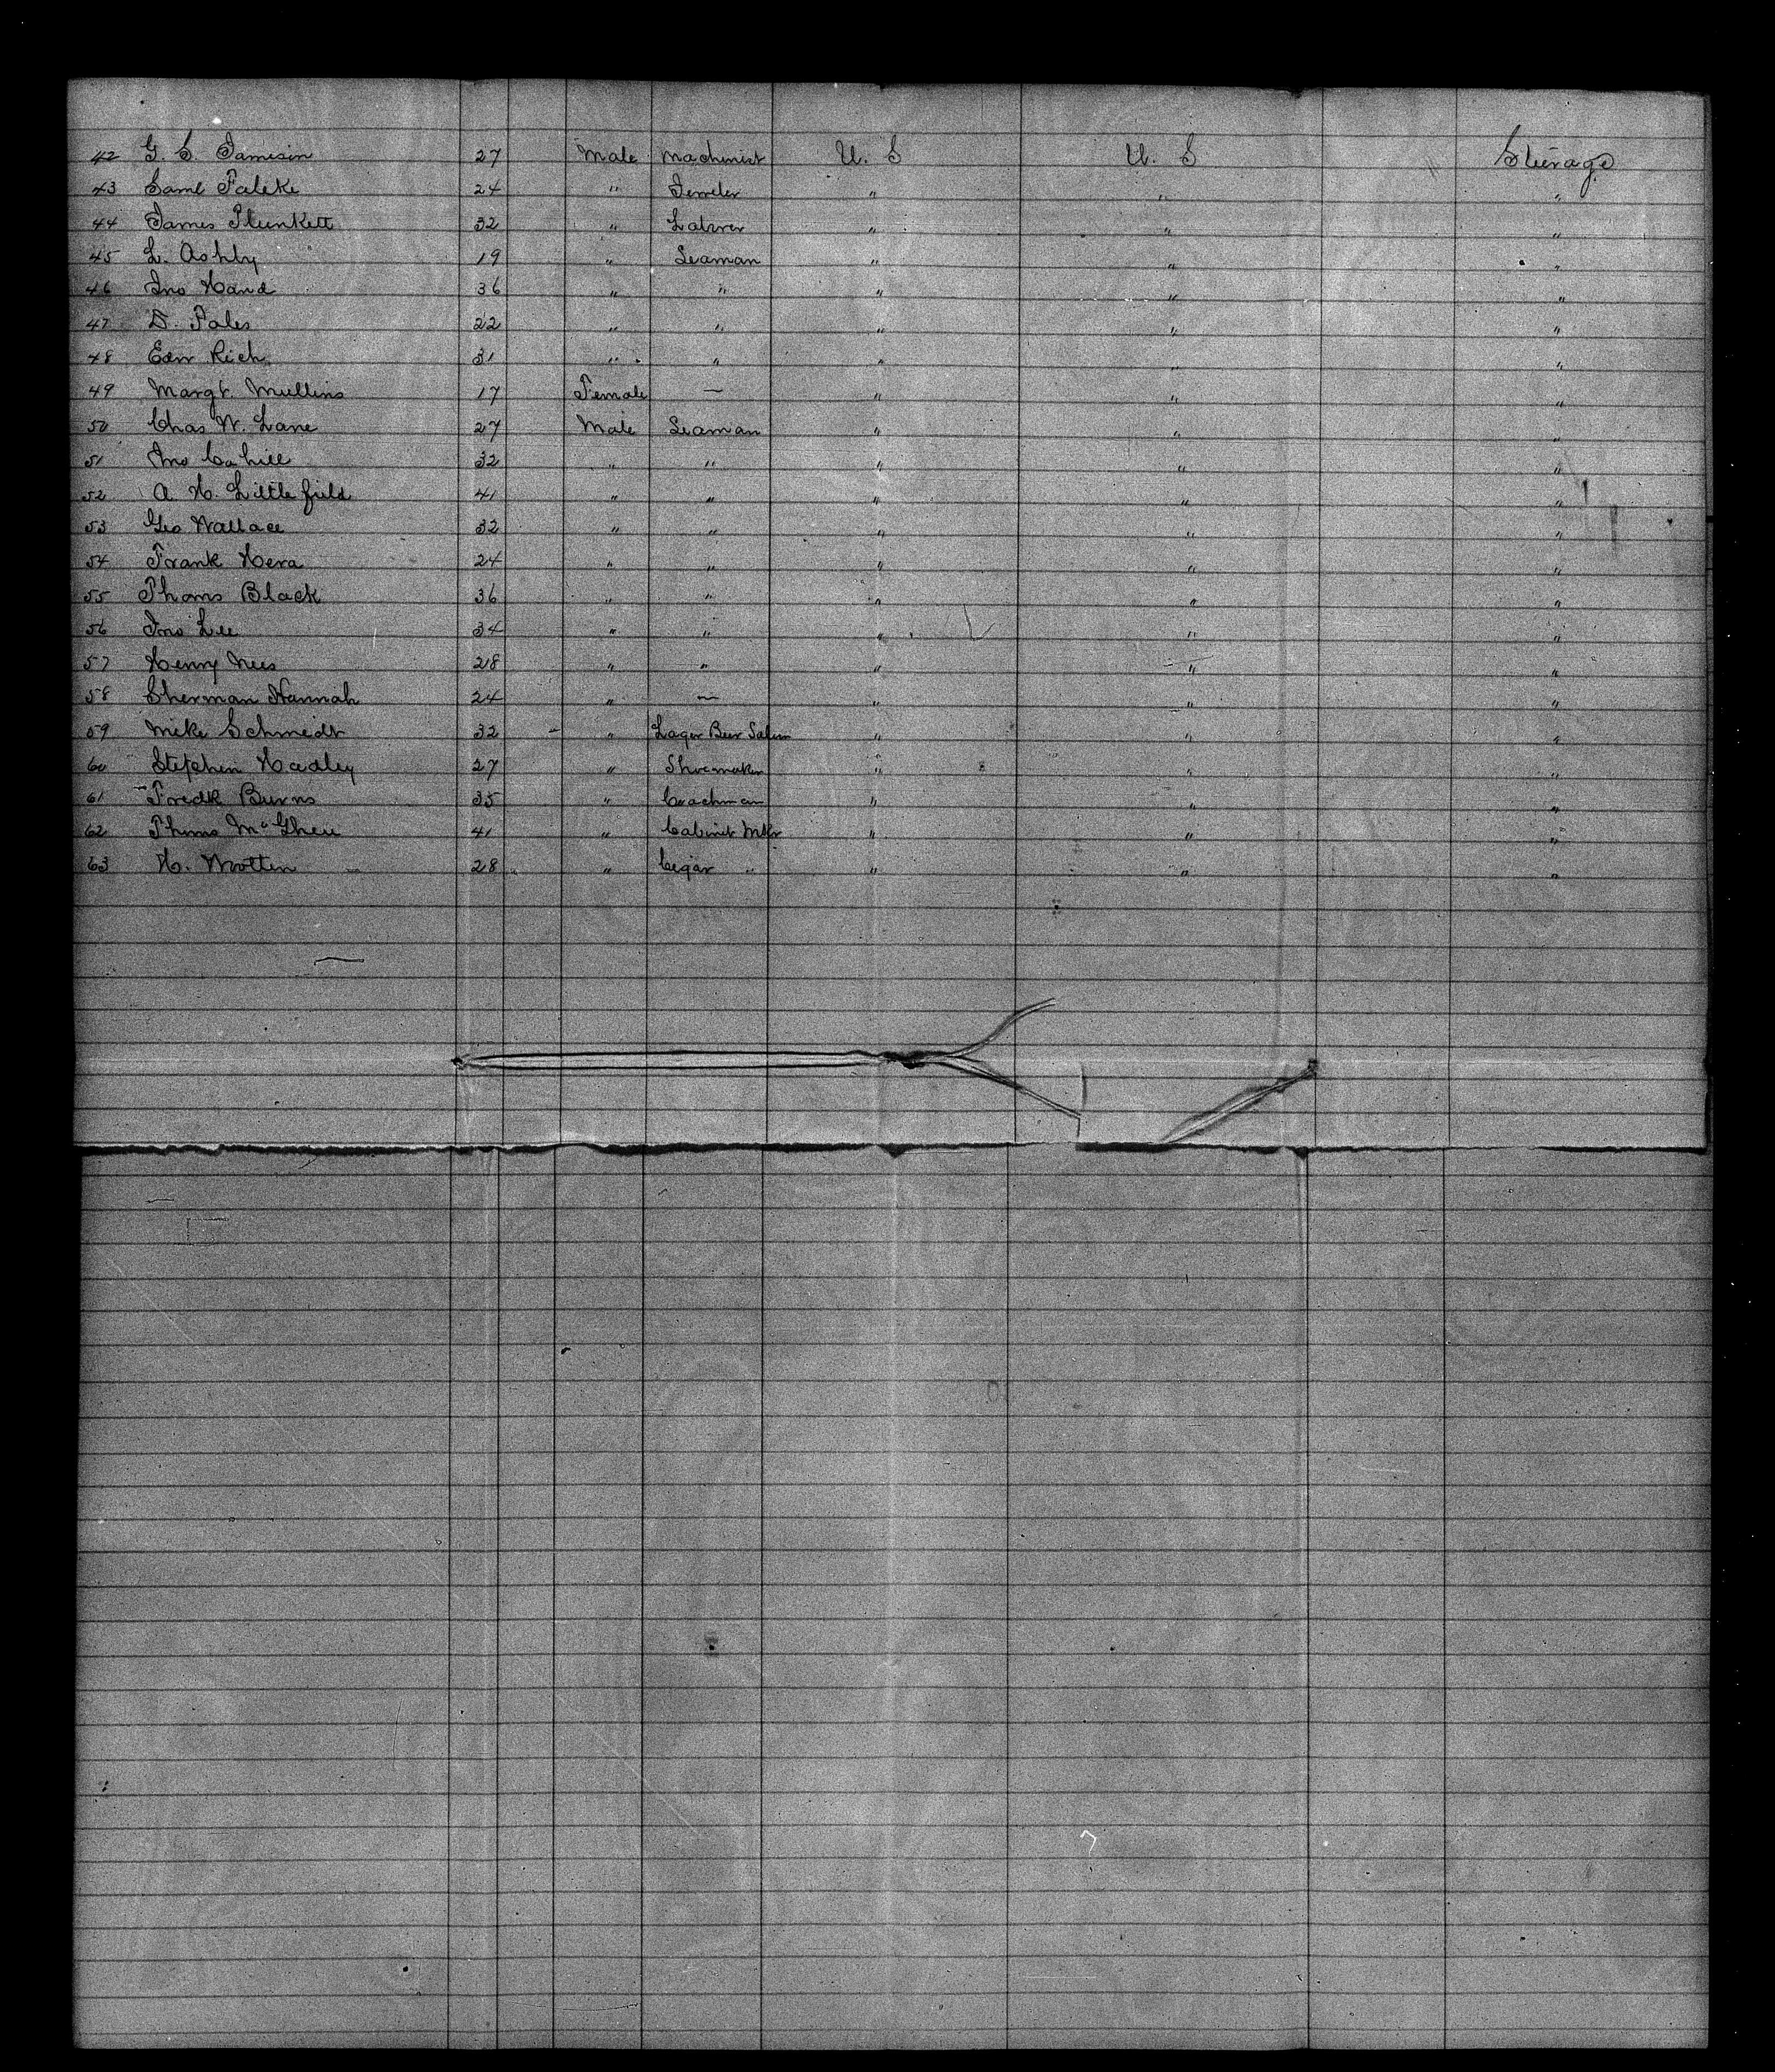 42 G. S. Jamesin 27 Male Machinist U. S U. S Steerage
43 Saml Faleke 24 " Jeweler " " "
44 James Plunkett 32 " Laborer " " "
45 L. Ashby 19 " Seaman " " "
46 Jno Hand 36 " " " " "
47 D. Fales 22 " " " " "
48 Edw Rich 31 " " " " "
49 Margt. Mullins 17 Female — " " "
50 Chas W. Lane 27 Male Seaman " " "
51 Jno Cahill 32 " " " " "
52 A H. Littlefield 41 " " " " "
53 Geo Wallace 32 " " " " "
54 Frank Hera 24 " " " " "
55 Thoms Black 36 " " " " "
56 Jno Lee 34 " " " " "
57 Henry Nees 28 " " " " "
58 Sherman Hannah 24 " — " " "
59 Mike Schmidt 32 " Lager Beer Saloon " " "
60 Stephen Hadley 27 " Shoemaker " " "
61 Fredk Burns 35 " Coachman " " "
62 Thoms McGhee 41 " Cabinet Mkr " " "
63 H. Wootten 28 " Cegar " " " "